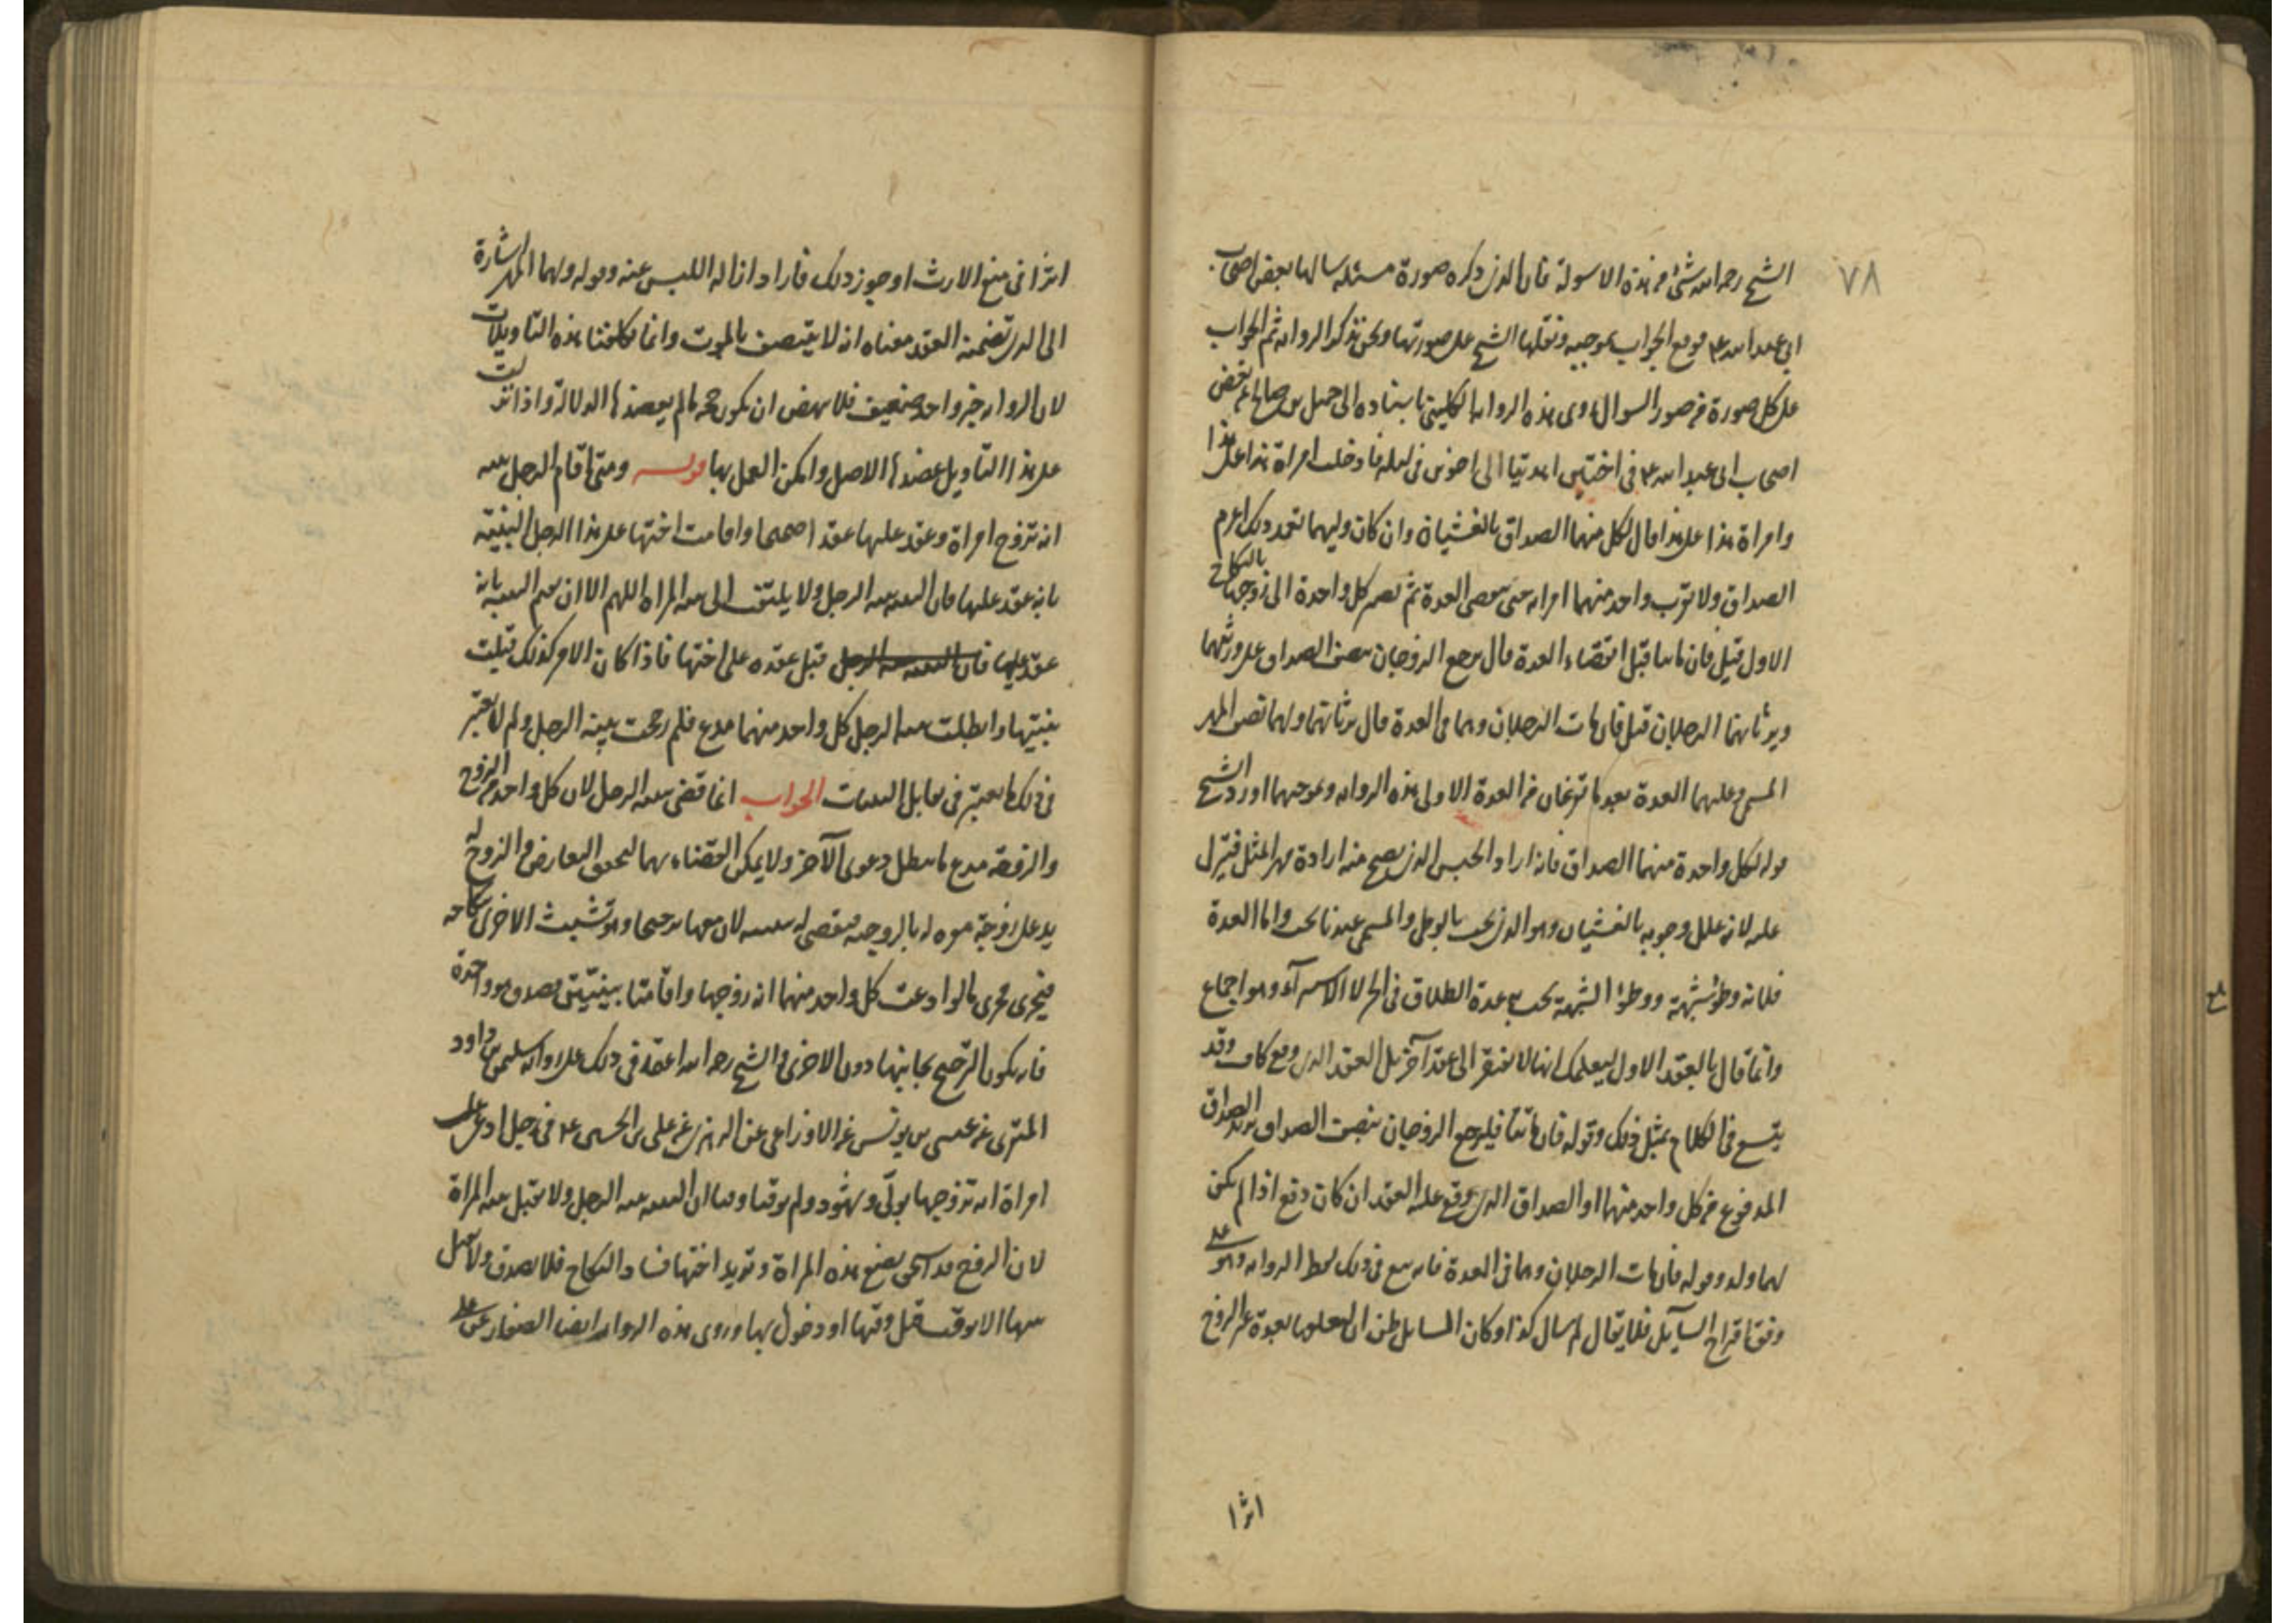 ٧٨
الشيخ رحمه الله شئ من هذه الاسولة فان الذى ذكره صورة مسئلة سالها بعض اصحاب
ابى عبد الله ع فوقع الجواب بموجبه ونقلها الشيخ على صورتها ونحن نذكر الروايه ثم الجواب
على كل صورة من صور السوال روى هذه الروايه الكلينى باسناده الى جميل بن صالح عن بعض
اصحاب ابى عبد الله ع فى اختين اهديتا الى اخوين فى ليله فادخلت امراة هذا على هذا
وامراة هذا على هذا قال لكل منهما الصداق بالغشيان وان كان وليهما تعمد ذلك اغرم
الصداق ولا يقرب واحد منهما امراته حتى تنقضى العدة ثم تصير كل واحدة الى زوجها بالنكاح
الاول قيل فان ماتتا قبل انقضاء العدة قال يرجع الزوجان بنصف الصداق على ورثتهما
ويرثانهما الرجلان قيل فان مات الرجلان وهما فى العدة قال يرثانهما ولهما نصف المهر
المسمى وعليهما العدة بعد ما تفرغان من العدة الاولى هذه الروايه وبموجبها اورد الشيخ
قوله لكل واحدة منهما الصداق فانه اراد الجنس الذى يصح منه ارادة مهر المثل فينزل
عليه لانه علل وجوبه بالغشيان وهو الذى يجب بالوطى والمسمى عندنا يجب واما العدة
فلانه وطؤ شبهة ووطؤ الشبهة يجب مع عدة الطلاق فى الحر لا الاستبراء وهو اجماع
وانما قال بالعقد الاول ليعلمك انها لا تفتقر الى عقد آخر بل العقد الذى وقع كاف وقد
يتسع فى الكلام بمثل ذلك وقوله فان ماتتا فليرجع الزوجان بنصف الصداق يريد الصداق
المدفوع من كل واحد منهما او الصداق الذى وقع عليه العقد ان كان دفع اذا لم يكن
لهما ولد وقوله فان مات الرجلان وهما فى العدة فانه يتبع فى ذلك لفظ الروايه وهو على
وفق اقتراح السآيل فلا يقال لم سال كذا وكان السايل ظن ان تعلقها بعدة غير الزوج
اثرا
اثرا فى منع الارث او جوز ذلك فاراد ازالة اللبس عنه وقوله ولهما المهر اشارة
الى الذى تضمنه العقد معناه انه لا ينتصف بالموت وانما تكلفنا هذه التاويلات
لان الروايه خبر واحد ضعيف فلا ينهض ان يكون حجه ما لم يعضدها الدلالة واذا نزلت
على هذا التاويل عضدها الاصل وامكن العمل بها قوله ومتى اقام الرجل بينه
انه تزوج امراة وعقد عليها عقدا صحيحا واقامت اختها على هذا الرجل البينة
بانه عقد عليها فان البينه بينه الرجل ولا يلتفت الى بينه المراه اللهم الا ان تقيم البينه بانه
عقد عليها فان البينه بينه الرجل قبل عقده على اختها فاذا كان الامر كذلك قبلت
بينتها وابطلت بينه الرجل كل واحد منهما مدع فلم رجحت بينة الرجل ولم لا يعتبر
فى ذلك ما يعتبر فى تقابل البينات الجواب انما قضى ببينه الرجل لان كل واحد من الزوج
والزوجة مدع ما يبطل دعوى الآخر ولا يمكن القضاء بهما لتحقق التعارض والزوج له
يد على زوجة مقره له بالزوجيه فيقضى له ببينته لان معها مرجحا وهو تشبث الاخرى بنكاحه
فيجرى مجرى ما لو ادعت كل واحد منهما انه زوجها واقامتا بينتين فصدق هو واحدة
فانه يكون الترجيح بجانبها دون الاخرى والشيخ رحمه الله اعتمد فى ذلك على رواية سليمن بن داود
المنقرى عن عيسى بن يونس عن الاوزاعى عن الزهرى عن على بن الحسين ع فى رجل ادعى على
امراة انه تزوجها بولى وشهود ولم يوقتا وقتا ان البينه بينه الرجل ولا تقبل بينه المراة
لان الزوج قد استحق بضع هذه المراة وتريد اختها فساد النكاح فلا تصدق ولا تقبل
بينتها الا بوقت قبل وقتها او دخول بها وروى هذه الروايه ايضا الصفار عن على